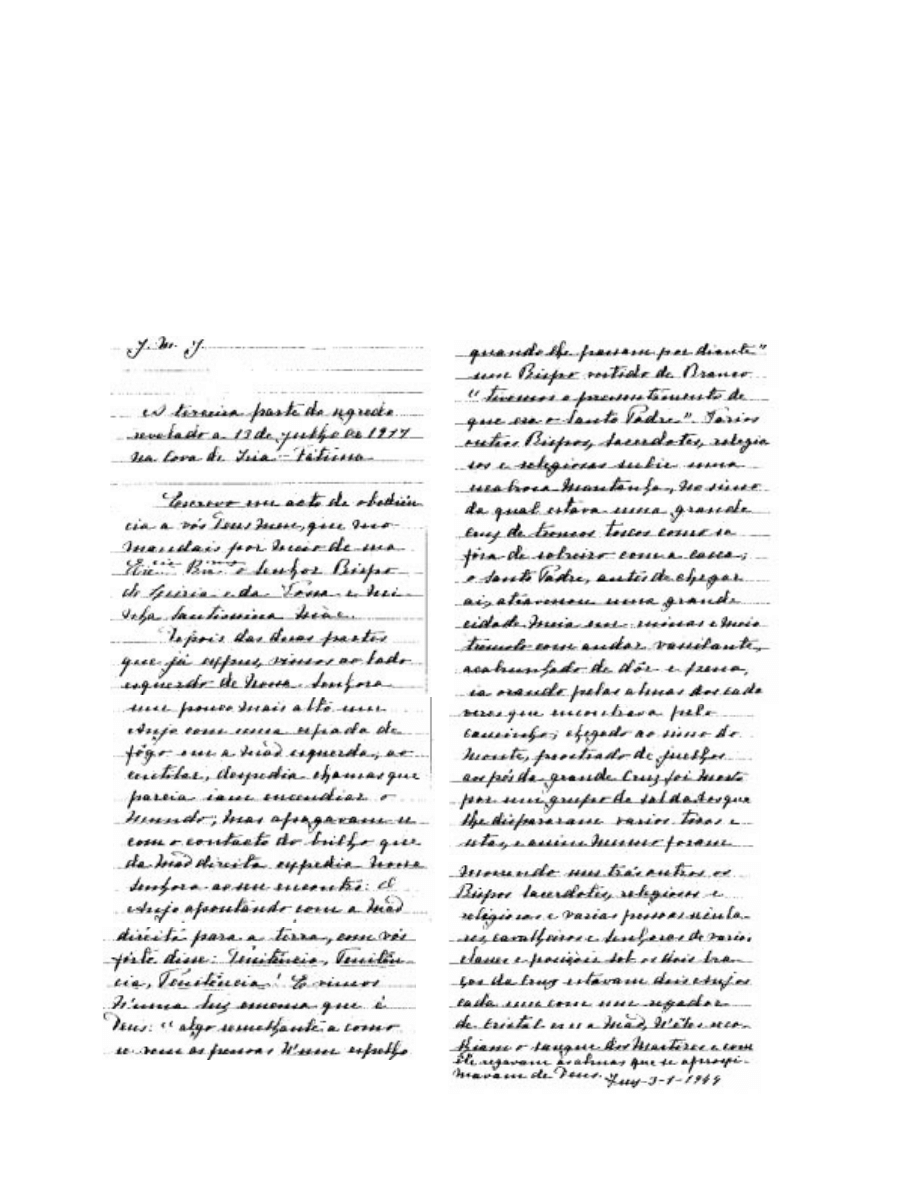 J. M. J.
A terceira parte do segredo
revelado a 13 de julho de 1917
na Cova de Iria – Fátima
Escrevo em acto de obediên
cia a vós Deus meu, que mo
mandais por meio de sua
Ex.cia Rev.ma o Senhor Bispo
de Leiria e da Vossa e mi
nha Santíssima Mãe.
Depois das duas partes
que já expus, vimos ao lado
esquerdo de Nossa Senhora
um pouco mais alto um
Anjo com uma espada de
fôgo em a mão esquerda; ao
centilar, despedia chamas que
parecia iam encendiar o
mundo; mas apagavam-se
com o contacto do brilho que
da mão direita expedia Nossa
Senhora ao seu encontro: O
Anjo apontando com a mão
direita para a terra, com voz
forte disse: Penitência, Penitên
cia, Penitência! E vimos
n'uma luz emensa que é
Deus: "algo semelhante a como
se vem as pessoas n'um espelho
quando lhe passam por diante"
um Bispo vestido de Branco
"tivemos o pressentimento de
que era o Santo Padre". Varios
outros Bispos, sacerdotes, religio
sos e religiosas subir uma
escabrosa montanha, no simo
da qual estava uma grande
Cruz de troncos toscos como se
fôra de sobreiro com a casca;
o Santo Padre, antes de chegar
aí, atravessou uma grande
cidade meia em ruinas e meio
trémulo com andar vassilante,
acabrunhado de dôr e pena,
ia orando pelas almas dos cada
veres que encontrava pelo
caminho; chegado ao simo do
monte, prostrado de juelhos
aos pés da grande Cruz foi morto
por um grupo de soldados que
lhe dispararam varios tiros e
setas, e assim mesmo foram
morrendo uns trás outros os
Bispos Sacerdotes, religiosos e
religiosas e varias pessoas secula-
res, cavalheiros e senhoras de varias
classes e posições. Sob os dois bra-
ços da Cruz estavam dois Anjos
cada um com um regador
de cristal em a mão, n'êles reco-
lhiam o sangue dos Martires e com
êle regavam as almas que se aproxi-
mavam de Deus.
Tuy-3-1-1944